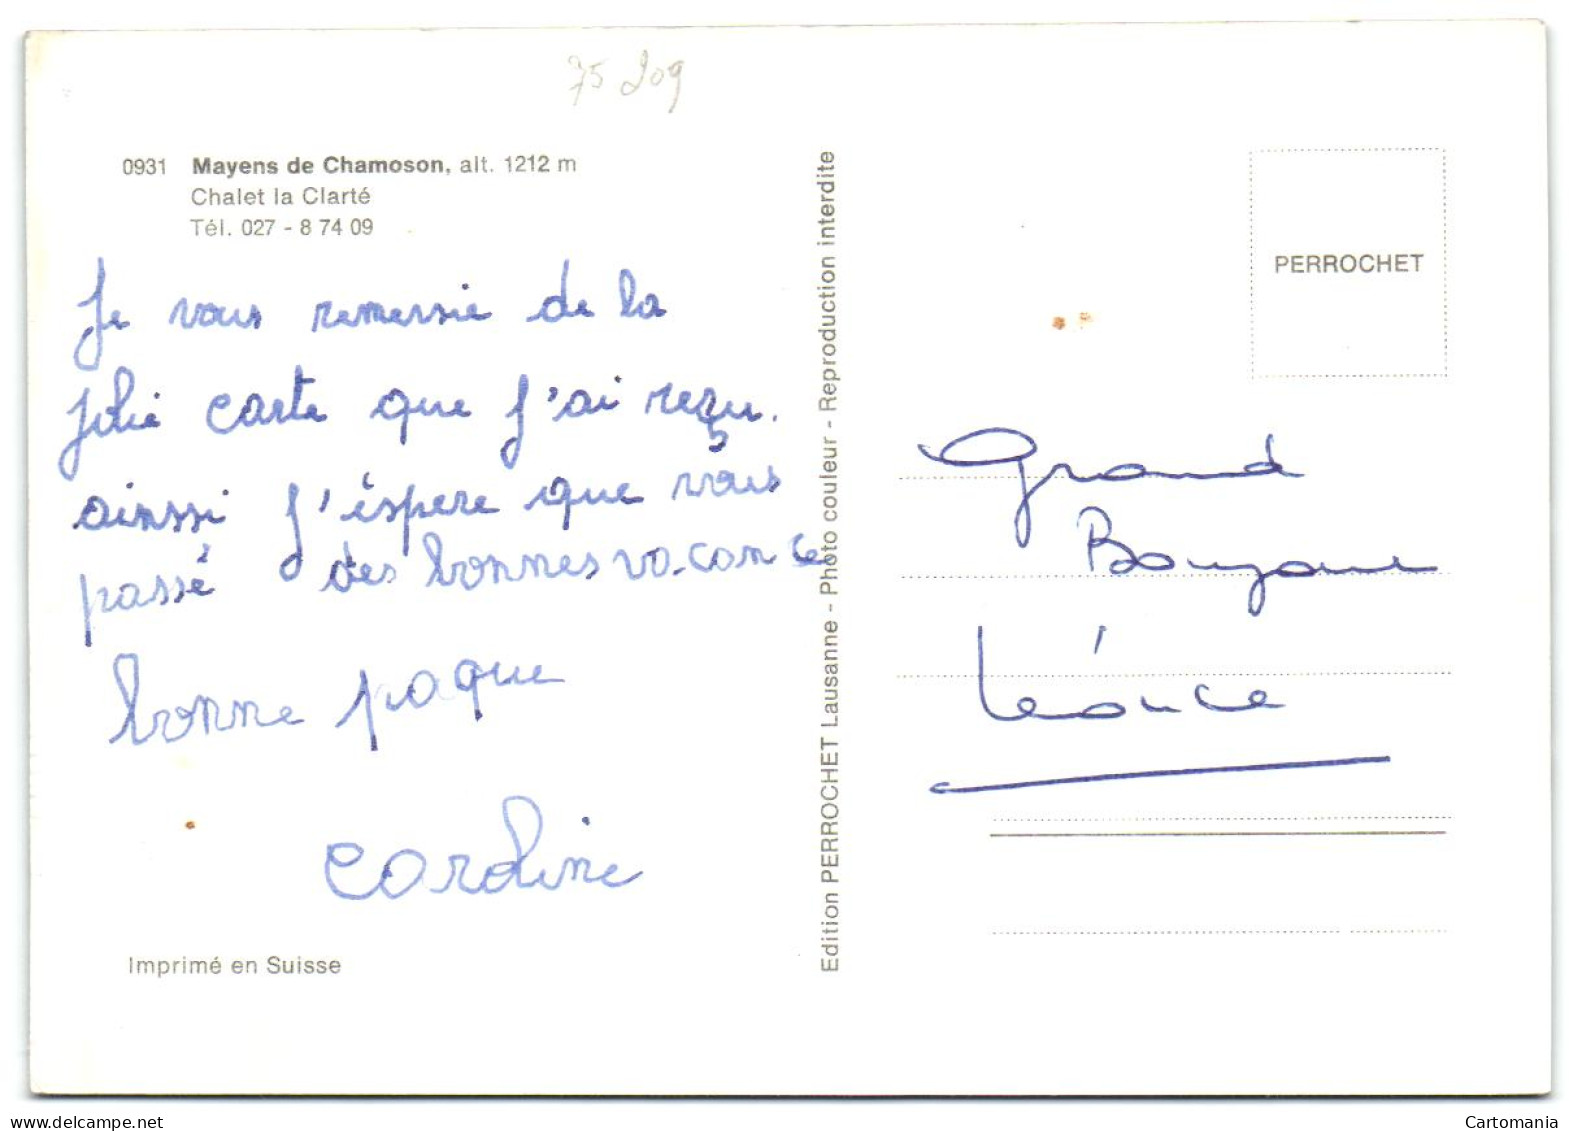 75 209
0931 Mayens de Chamoson, alt. 1212 m
Chalet la Clarté
Tél. 027 - 8 74 09
Je vous remersie de la
jolie carte que j'ai reçu.
ainssi j'éspere que vous
passé des bonnes vacance
bonne paque
coroline
Imprimé en Suisse
Edition PERROCHET Lausanne - Photo couleur - Reproduction interdite
PERROCHET
Grand
Léonce
Cartomania